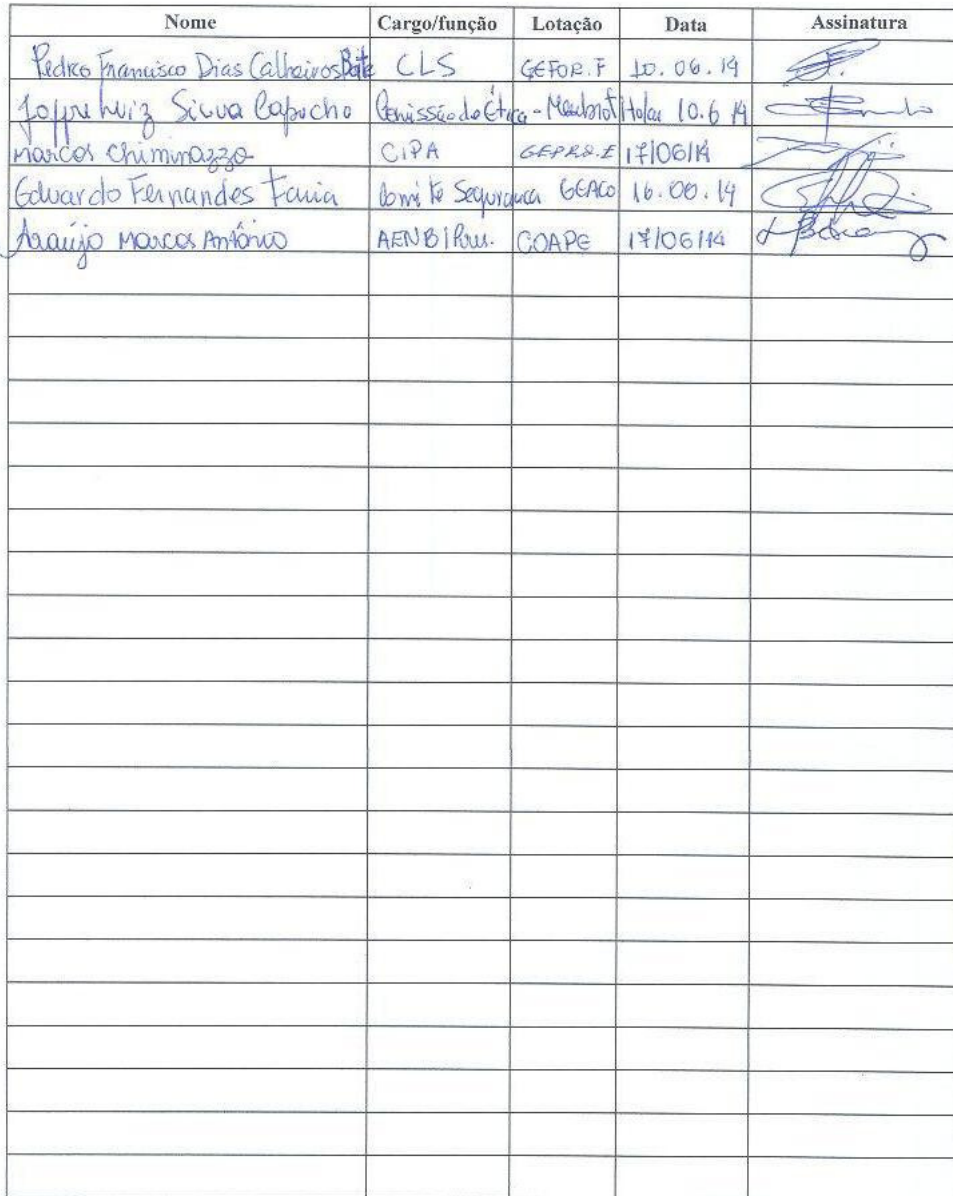 Nome Cargo/função Lotação Data Assinatura
Pedro Francisco Dias Calheiros Boite CLS GEFOR.F 10.06.14
Joffre Luiz Silva Capucho Comissão de Ética - Titular 10.6 14
Marcos Chiminazzo CIPA GEPRO.E 17/06/14
Eduardo Fernandes Faria Comitê Segurança GEACO 16.06.14
Araújo Marcos Antônio AENB/ COAPE 17/06/14